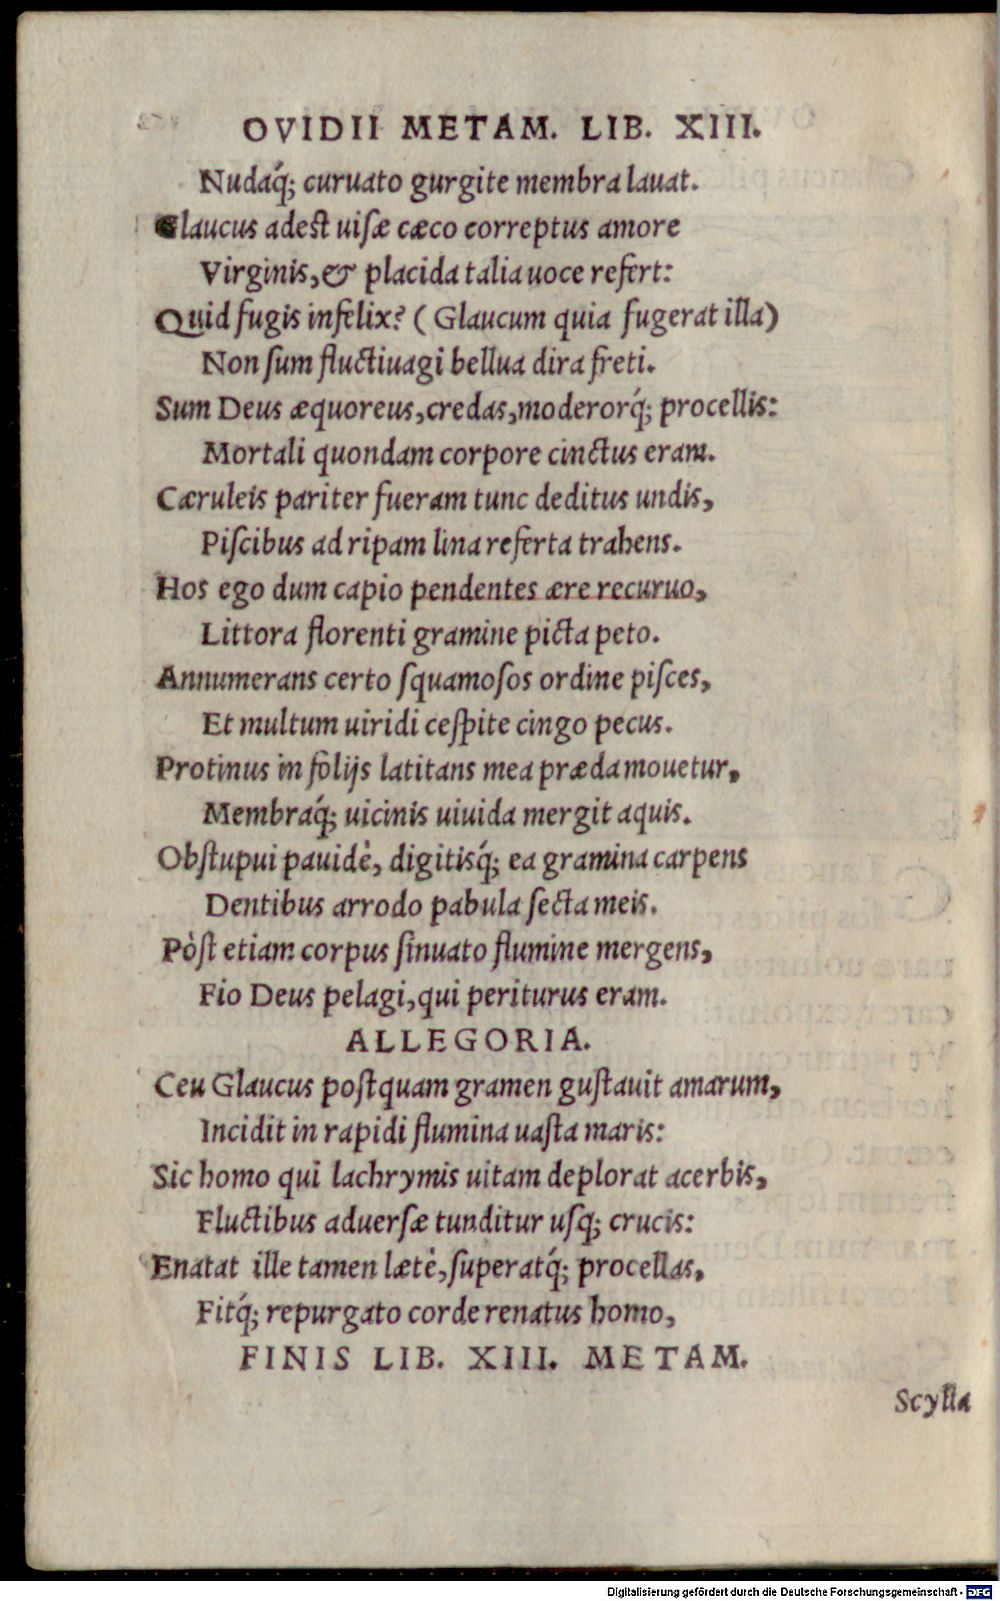 OVIDII METAM. LIB. XIII.
Nudaq́; curuato gurgite membra lauat.
Glaucus adest uiſæ cæco correptus amore
Virginis, & placida talia uoce refert:
Quid fugis infelix? (Glaucum quia fugerat illa)
Non ſum fluctiuagi bellua dira freti.
Sum Deus æquoreus, credas, moderorq́; procellis:
Mortali quondam corpore cinctus eram.
Cæruleis pariter fueram tunc deditus undis,
Piſcibus ad ripam lina referta trahens.
Hos ego dum capio pendentes ære recuruo,
Littora florenti gramine picta peto.
Annumerans certo ſquamoſos ordine piſces,
Et multum uiridi ceſpite cingo pecus.
Protinus in folijs latitans mea præda mouetur,
Membraq́; uicinis uiuida mergit aquis.
Obſtupui pauidè, digitisq́; ea gramina carpens
Dentibus arrodo pabula ſecta meis.
Pòſt etiam corpus ſinuato flumine mergens,
Fio Deus pelagi, qui periturus eram.
ALLEGORIA.
Ceu Glaucus poſtquam gramen guſtauit amarum,
Incidit in rapidi flumina uaſta maris:
Sic homo qui lachrymis uitam deplorat acerbis,
Fluctibus aduerſæ tunditur uſq; crucis:
Enatat ille tamen lætè, ſuperatq́; procellas,
Fitq́; repurgato corde renatus homo,
FINIS LIB. XIII. METAM.
Scylla
Digitalisierung gefördert durch die Deutsche Forschungsgemeinschaft - DFG